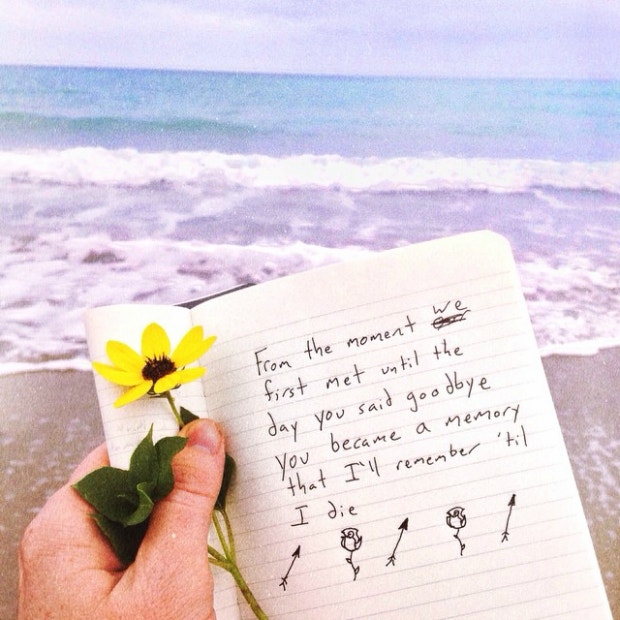 From the moment we
first met until the
day you said goodbye
you became a memory
that I'll remember 'til
I die